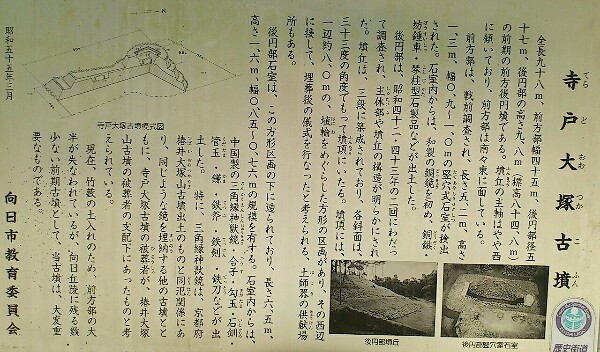 寺戸大塚古墳
てら ど おお つか こ ふん
全長九十八m、前方部幅四十五m、後円部径五
十七m、後円部の高さ九、八m(標高八十四、八m)
の前期の前方後円墳である。墳丘の主軸はやや西
に傾いており、前方部は南々東に面している。
前方部は、戦前調査され、長さ五、二m、高さ
一、三m、幅〇、九〜一、〇mの竪穴式石室が検出
された。石室内からは、和製の銅鏡を初め、銅鏃・
紡錘車・琴柱型石製品などが出土した。
後円部は、昭和四十二・四十三年の二回にわたっ
て調査され、主体部や墳丘の構造が明らかにされ
た。墳丘は、三段に築成されており、各斜面は、
三十三度の角度でもって墳頂にいたる。墳頂には、
一辺約八、〇mの、埴輪をめぐらした方形の区画があり、その西辺
に接して、埋葬後の儀式を行なったと考えられる、土師器の供献場
所もある。
後円部石室は、この方形区画の下に造られており、長さ六、五m、
高さ一、六m、幅〇、八五〜〇、七六mの規模を有する。石室内からは、
中国製の三角縁神獣鏡・合子・勾玉・石釧・
管玉・鎌・鉄斧・鉄剣・鉄刀などが出
土した。特に、三角縁神獣鏡は、京都府
椿井大塚山古墳出土のものと同笵関係にあ
り、同じような鏡を埋納する他の古墳とと
もに、寺戸大塚古墳の被葬者が、椿井大塚
山古墳の被葬者の支配下にあったものと考
えられている。
現在、竹薮の土入れのため、前方部の大
半が失なわれているが、向日丘陵に残る数
少ない前期古墳として、当古墳は、大変重
要なものである。
向日市教育委員会
昭和五十五年三月
寺戸大塚古墳模式図
後円部墳丘
後円部竪穴式石室
歴史街道